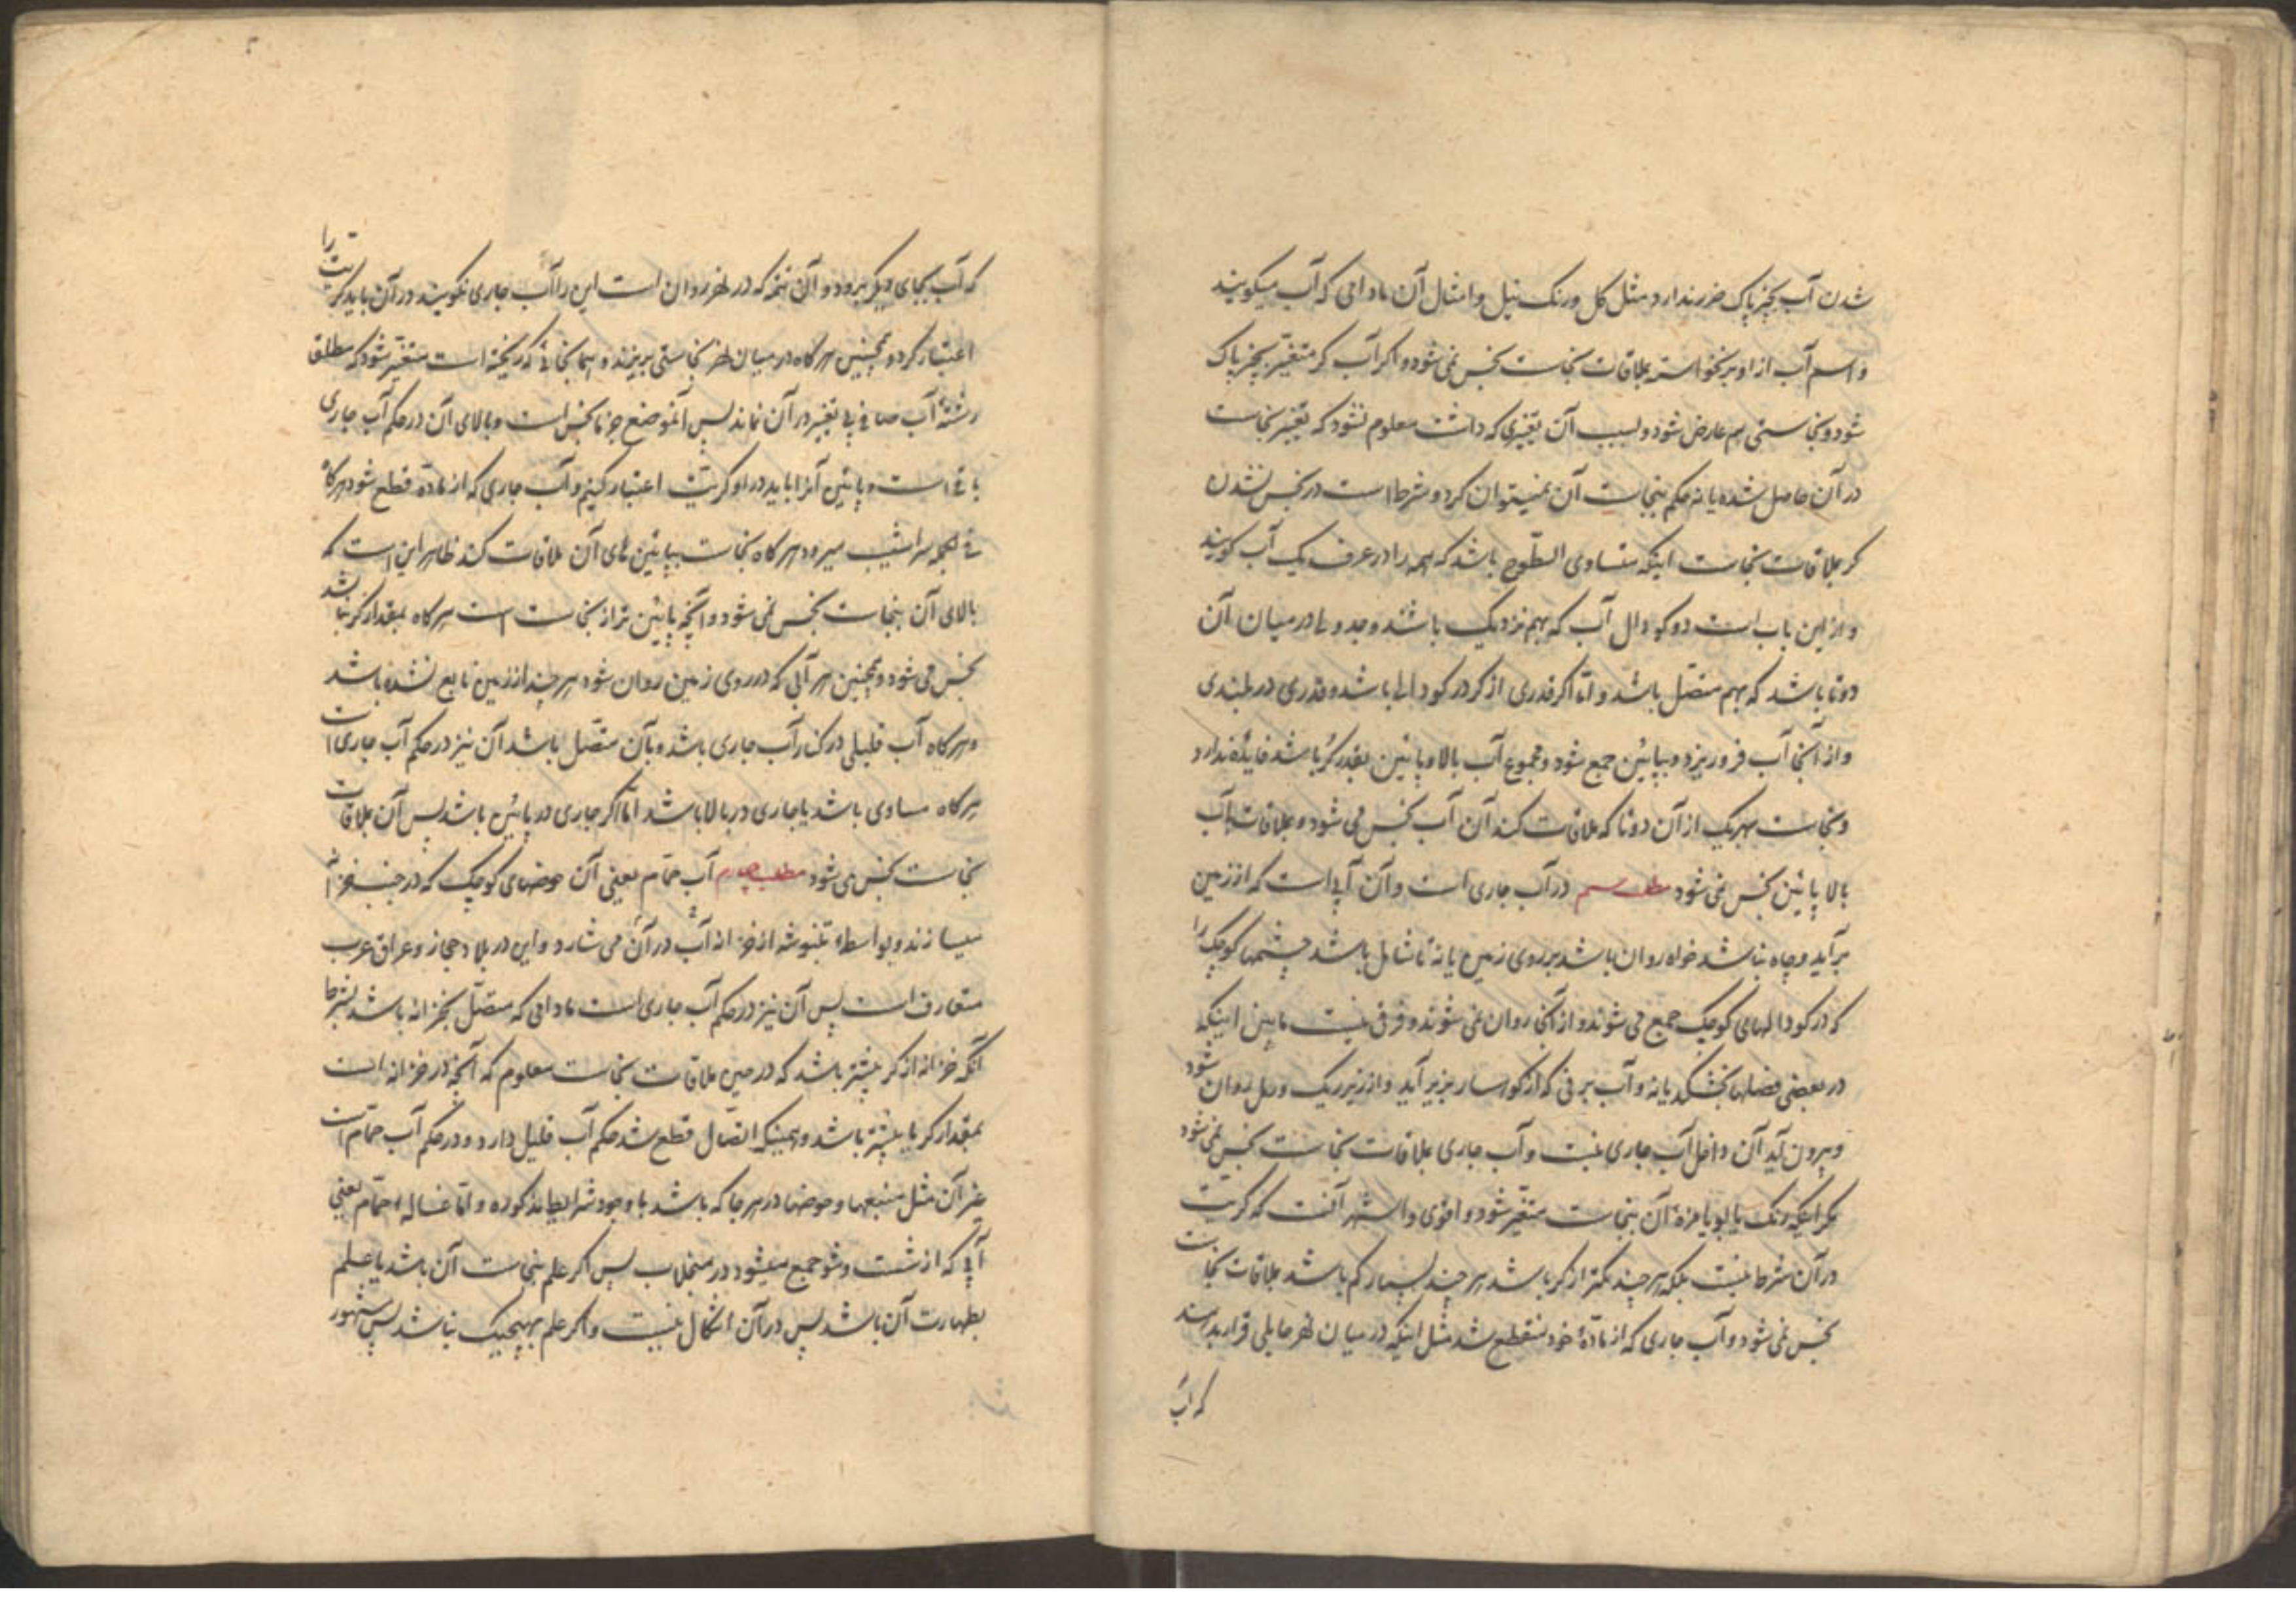 شدن آب بچیز پاک ضرر ندارد مثل گل و رنک نیل و امثال آن مادامی که آب میکویند
و اسم آب از او برنخواسته بملاقات نجاست نجس نمی شود و اکر آب کر متغیّر بچیز پاک
شود و نجاستی هم عارض شود و بسبب آن تغیّری که داشت معلوم نشود که تغیّر نجاست
در آن حاصل شده یا نه حکم بنجاست آن نمیتوان کرد و شرط است در نجس نشدن
کر بملاقات نجاست اینکه متساوی السّطوح باشد که همه را در عرف یک آب کویند
و از این باب است دو کودال آب که بهم نزدیک باشند و جدولی در میان آن
دوتا باشد که بهم متصل باشد و امّا اکر قدری از کر در کودالی باشد و قدری در بلندی
و از آنجا آب فرو ریزد و بپائین جمع شود و مجموع آب بالا و پائین بقدر کُر باشد فایده ندارد
و نجاست بهریک از آن دوتا که ملاقات کند آن آب نجس می شود و بملاقات آب
بالا پائین نجس نمی شود مطلب سیم در آب جاری است و آن آبی است که از زمین
برآید و چاه نباشد خواه روان باشد بر روی زمین یا نه تا شامل باشد چشمها کوچک را
که در کودالهای کوچک جمع می شوند و از آنجا روان نمی شوند و فرق نیست مابین اینکه
در بعضی فصلها بخشکد یا نه و آب برفی که از کوهسار بزیر آید و از زیر ریک و رمل روان شود
و بیرون آید آن داخل آب جاری نیست و آب جاری بملاقات نجاست نجس نمی شود
مکر اینکه رنک یا بو یا مزهٔ آن بنجاست متغیّر شود و اقوی و اشهر آنست که کریّت
در آن شرط نیست بلکه هر چند کمتر از کر باشد هر چند بسیار کم باشد بملاقات نجاست
نجس نمی شود و آب جاری که از مادّهٔ خود منقطع شد مثل اینکه در میان نهر حایلی قرار بدهند
که آب
که آب بجای دیکر برود و آن تتمّه که در نهر روان است این را آب جاری نکویند در آن باید کریّت را
اعتبار کرد و همچنین هر کاه در میان نهر نجاستی بریزند و همانجائی که ریخته است متغیّر شود که مطلق
رشتهٔ آب صافی بی تغیّر در آن نماند پس آنموضع جزما نجس است و بالای آن در حکم آب جاری
باقی است و پائین آنرا باید در او کریّت اعتبار کنیم و آب جاری که از مادّه قطع شود هرکاه
فی الجمله سراشیب میرود هر کاه نجاست بپائین های آن ملاقات کند ظاهر این است که
بالای آن بنجاست نجس نمی شود و آنچه پائین تر از نجاست است هر کاه بمقدار کر نباشد
نجس می شود و همچنین هر آبی که در روی زمین روان شود هر چند از زمین نابع نشده باشد
و هر کاه آب قلیلی در کنار آب جاری باشد و بآن متّصل باشد آن نیز در حکم آب جاری است
هر کاه مساوی باشد یا جاری در بالا باشد امّا اکر جاری در پائین باشد پس آن بملاقات
نجاست نجس می شود مطلب چهارم آب حمّام یعنی آن حوضهای کوچک که در جنب خزانه
میسازند و بواسطهٔ تنبوشه از خزانه آب در آن می شارد و این در بلاد حجاز و عراق عرب
متعارف است پس آن نیز در حکم آب جاری است مادامی که متّصل بخزانه باشد بشرط
آنکه خزانه از کر بیشتر باشد که در حین ملاقات نجاست معلوم که آنچه در خزانه است
بمقدار کر یا بیشتر باشد و همینکه اتّصال قطع شد حکم آب قلیل دارد و در حکم آب حمّام است
غیر آن مثل منبعها و حوضها در هر جا که باشد با وجود شرایط مذکوره و امّا غساله حمّام یعنی
آبی که از شست و شو جمع میشود در منجلاب پس اکر علم بنجاست آن باشد یا علم
بطهارت آن باشد پس در آن اشکال نیست و اکر علم بهیچیک نباشد پس مشهور